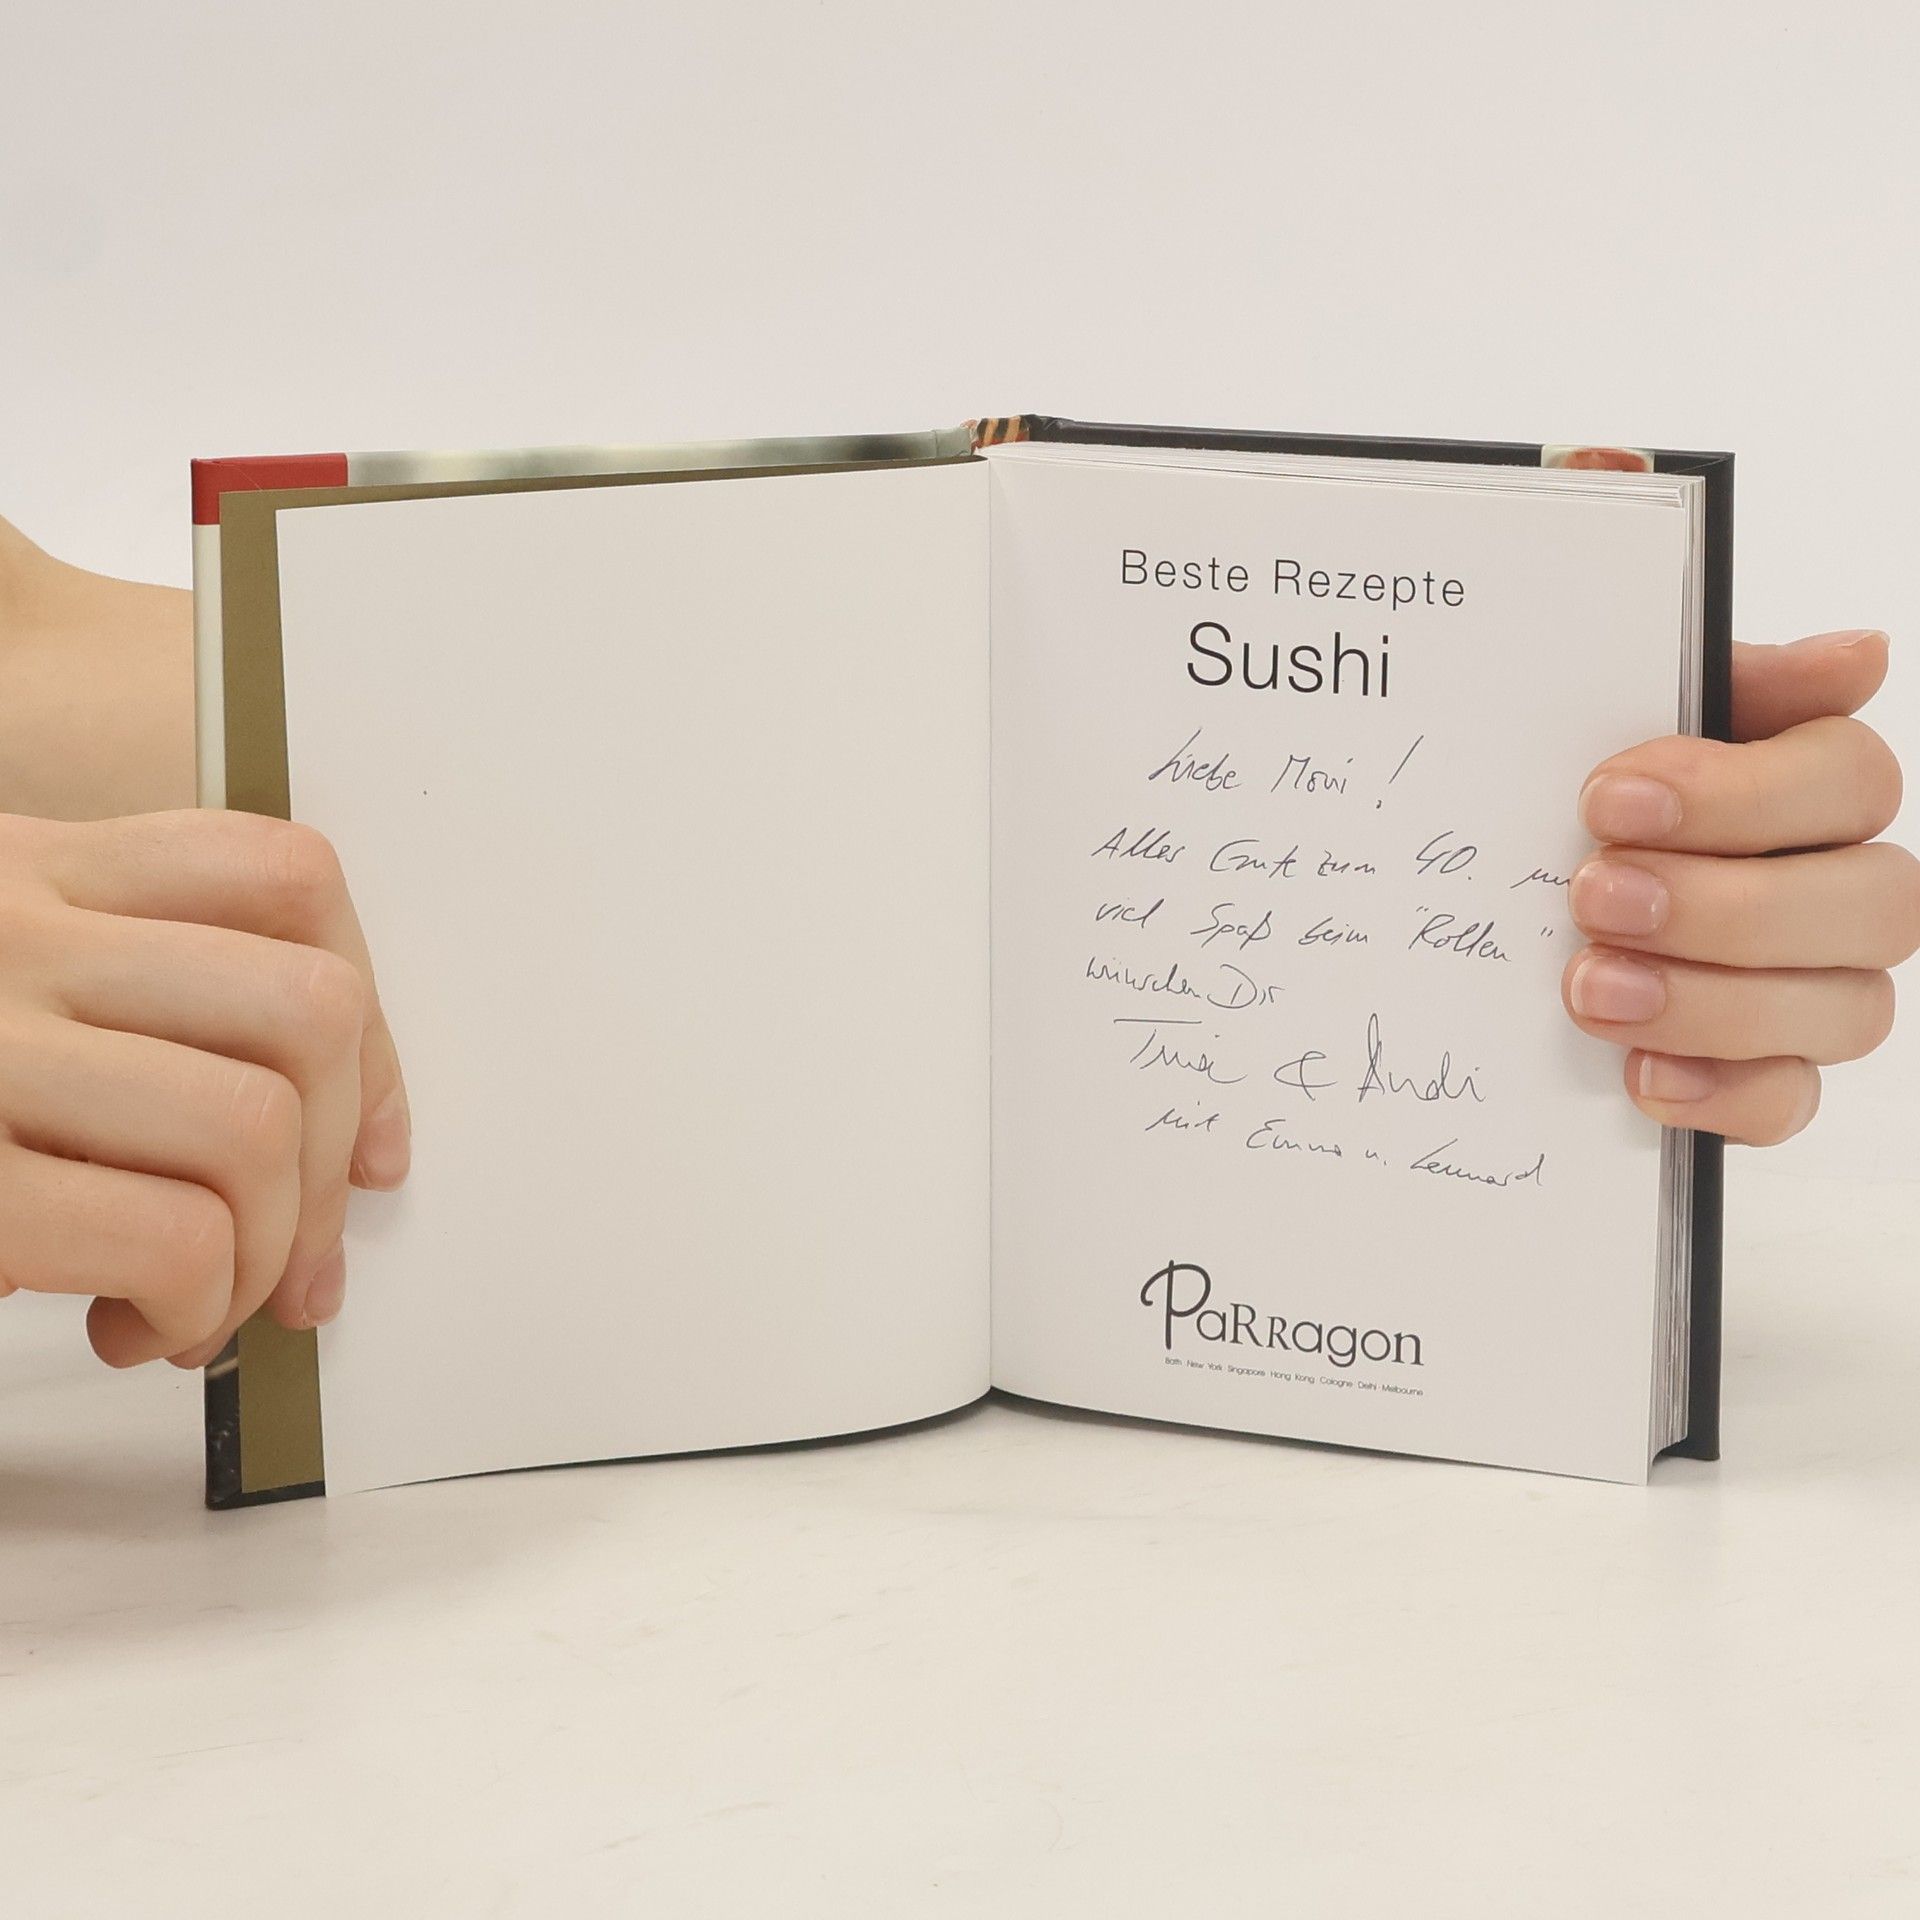 Beste Rezepte
Sushi
Liebe Moni!
Alles Gute zum 40.
viel Spaß beim "Rollen"
wünschen Dir
Tina & Andi
mit Emma u. Lennard
Parragon
Bath · New York · Singapore · Hong Kong · Cologne · Delhi · Melbourne